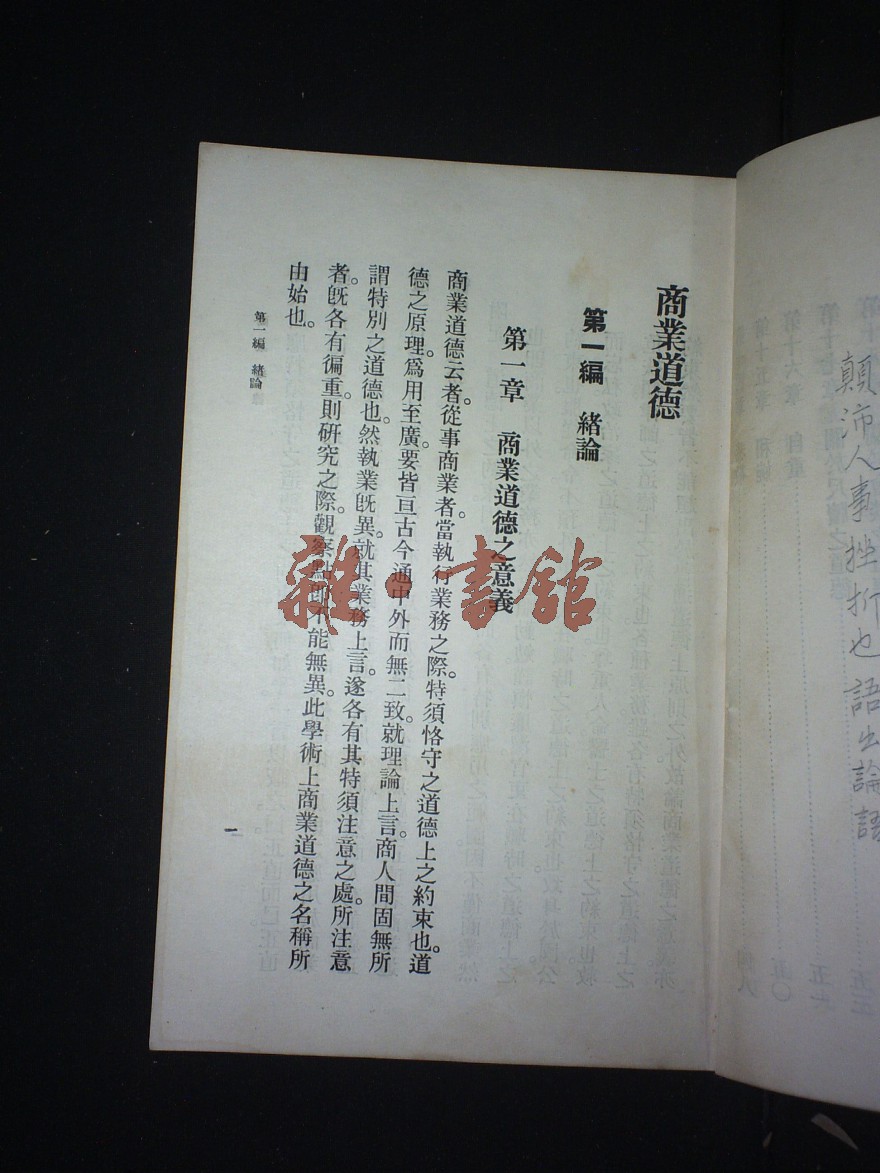 顛沛人事挫折也語出論語
商業道德
第一編　緒論
第一章　商業道德之意義
商業道德云者。從事商業者。當執行業務之際。特須恪守之道德上之約束也。道
德之原理。爲用至廣。要皆亘古今通中外而無二致。就理論上言。商人間固無所
謂特別之道德也。然執業旣異。就其業務上言。遂各有其特須注意之處。所注意
者。旣各有偏重。則研究之際。觀察點卽不能無異。此學術上商業道德之名稱所
由始也。
第一編　緒論
一
雜·書館